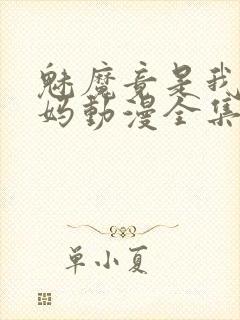 魅魔竟是我
妈動漫全集
单小夏